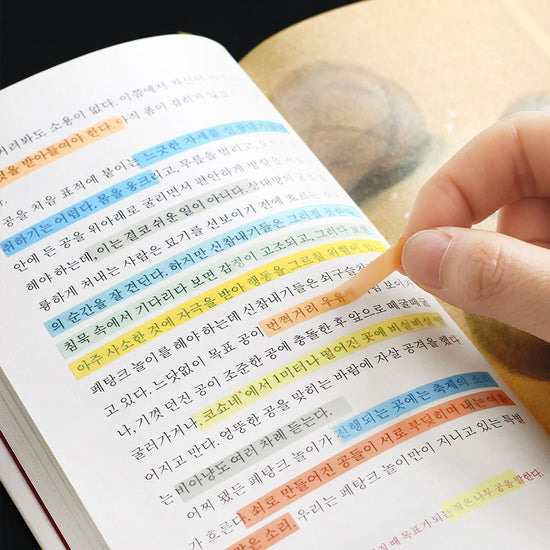 거려봐도 소용이 없다. 이쯤에서 자신이
것을 받아들여야 한다. 아직 몸이 잡히지 않았
공을 처음 표적에 붙이는 느긋한 자세를 신참내기들은
위하기는 어렵다. 몸을 웅크리고, 무릎을 벌리고,
안에 든 공을 위아래로 굴리면서 편안하게 방향을
해야 하는데, 이는 결코 쉬운 일이 아니다. 상대방의 공이
륭하게 쳐내는 사람은 묘기를 선보이기 전에 흐르는
의 순간을 잘 견딘다. 하지만 신참내기들은 그러질 못한다.
침묵 속에서 기다리다 보면 감정이 고조되고, 그러다 보면
아주 사소한 것에 자극을 받아 행동을 그르칠 위험이 있다.
페탕크 놀이를 해야 하는데 신참내기들은 쇠구슬
고 있다. 느닷없이 목표 공이 번쩍거려 우 보이지
나, 기껏 던진 공이 조준한 공에 충돌한 후 앞으로 떼굴떼굴
굴러가거나, '코쇼네'에서 1미터나 떨어진 곳에 비실비실
어지고 만다. 엉뚱한 공을 맞히는 바람에 자살 공격을 했다
는 비아냥도 여러 차례 듣는다.
어찌 됐든 페탕크 놀이가 진행되는 곳에는 축제의 소
가 흐른다. 쇠로 만들어진 공들이 서로 부딪히며 내는
같은 소리. 우리는 페탕크 놀이만이 지니고 있는 특별
질 때 목표가 되는 작은 나무 공을 말한다.